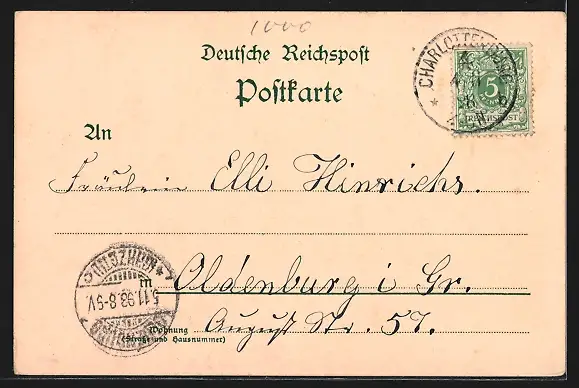 1000
Deutsche Reichspost
Postkarte
CHARLOTTENBURG
5
REICHSPOST
An
Fräulein Elli Hinrichs.
in Oldenburg i Gr.
5.11.98.8-9V.
Wohnung
(Straße und Hausnummer)
August Str. 57.